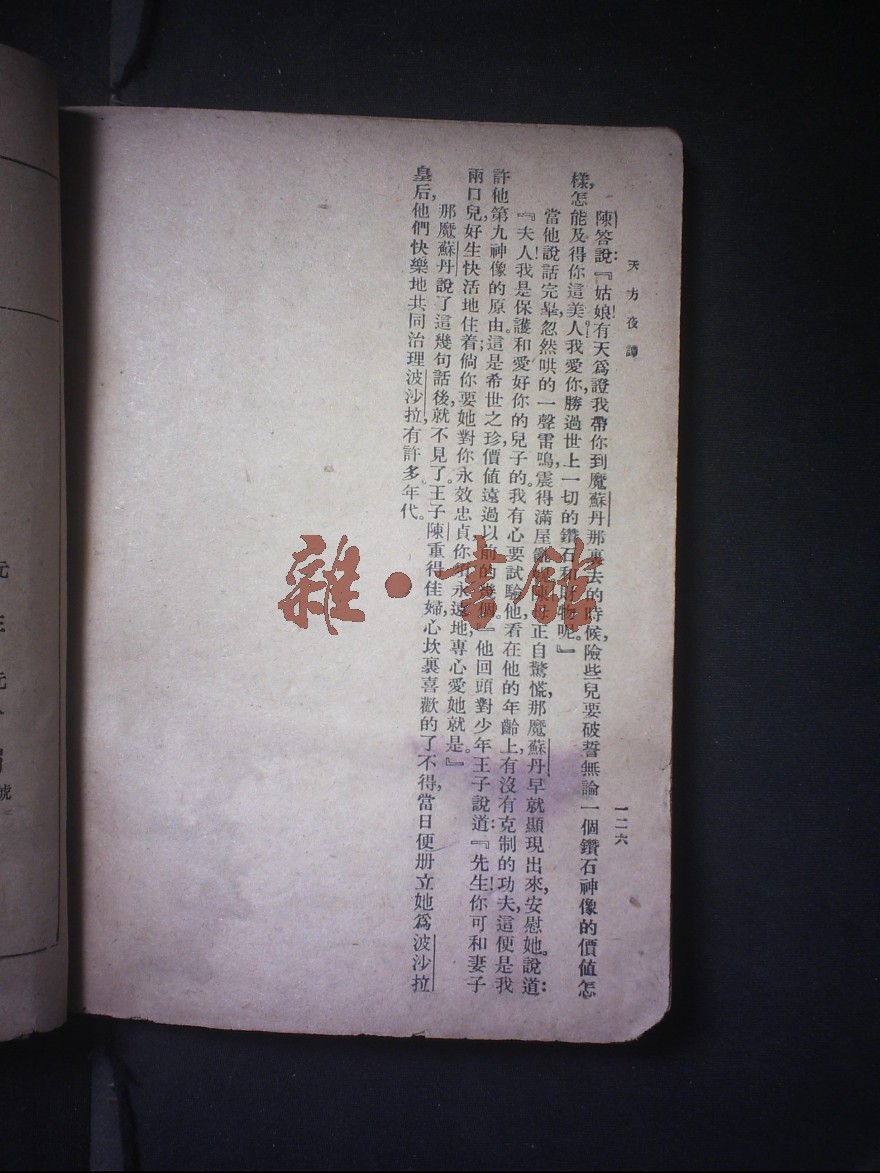 天方夜譚
一二六
陳答說:『姑娘!有天爲證我帶你到魔蘇丹那裏去的時候,險些兒要破誓無論一個鑽石神像的價値怎
樣,怎能及得你這美人。我愛你,勝過世上一切的鑽石和財物呢。』
當他說話完畢,忽然哄的一聲雷鳴,震得滿屋亂 正自驚慌,那魔蘇丹早就顯現出來,安慰她。說道:
『夫人!我是保護和愛好你的兒子的。我有心要試驗他,看在他的年齡上,有沒有克制的功夫,這便是我
許他第九神像的原由。這是希世之珍,價値遠過以前的幾個。』他回頭對少年王子說道:『先生!你可和妻子
兩口兒,好生快活地住着;倘你要她對你永效忠貞,你須永遠地專心愛她就是。』
那魔蘇丹說了這幾句話後,就不見了。王子陳重得佳婦,心坎裏喜歡的了不得,當日便册立她爲波沙拉
皇后,他們快樂地共同治理波沙拉,有許多年代。
雜·書館
元
元
號